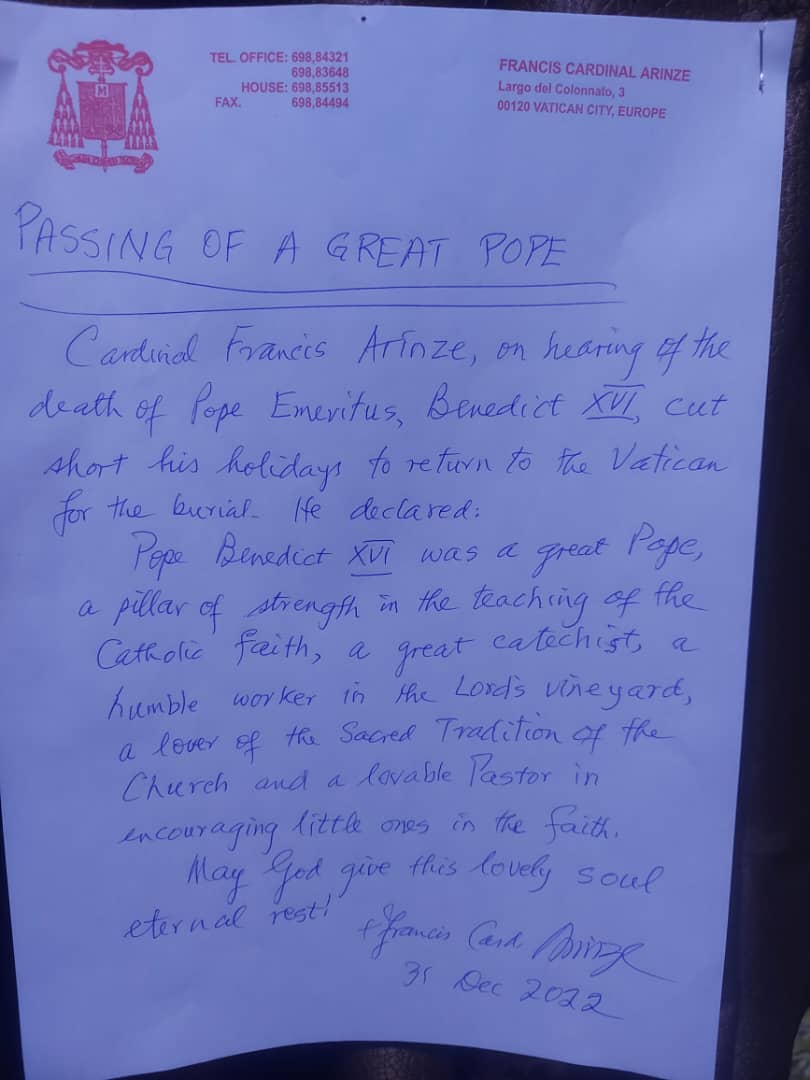 TEL. OFFICE: 698,84321
698,83648
HOUSE: 698,85513
FAX. 698,84494
FRANCIS CARDINAL ARINZE
Largo del Colonnato, 3
00120 VATICAN CITY, EUROPE
M
PASSING OF A GREAT POPE
Cardinal Francis Arinze, on hearing of the
death of Pope Emeritus, Benedict XVI, cut
short his holidays to return to the Vatican
for the burial. He declared:
Pope Benedict XVI was a great Pope,
a pillar of strength in the teaching of the
Catholic faith, a great catechist, a
humble worker in the Lord's vineyard,
a lover of the Sacred Tradition of the
Church and a lovable Pastor in
encouraging little ones in the faith.
May God give this lovely soul
eternal rest!
+ Francis Card. Arinze
31 Dec 2022